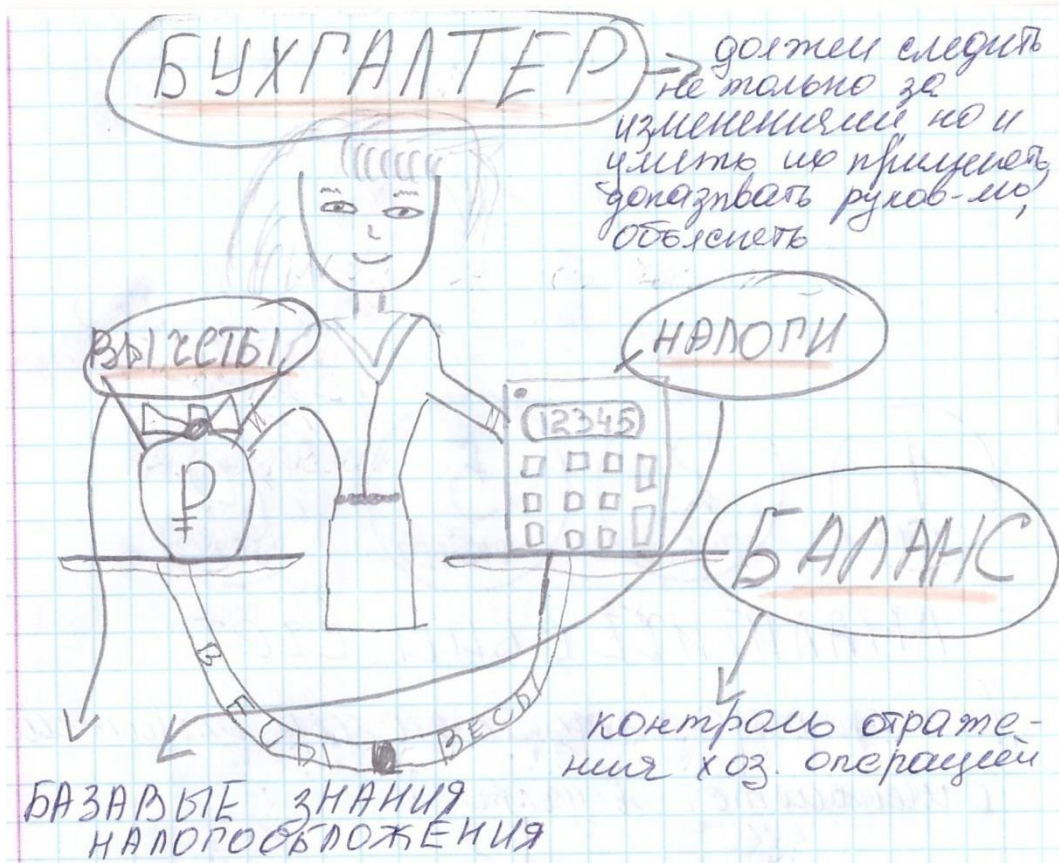 БУХГАЛТЕР
должен следить
не только за
изменениями но и
уметь их применять,
доказывать руков-лю,
объяснеть
ВЫЧЕТЫ
НАЛОГИ
12345
₽
БАЛАНС
ВЕСЫ
ВЕСЫ
контроль отраже-
ния хоз. операций
БАЗАВЫЕ ЗНАНИЯ
НАЛОГООБЛОЖЕНИЯ